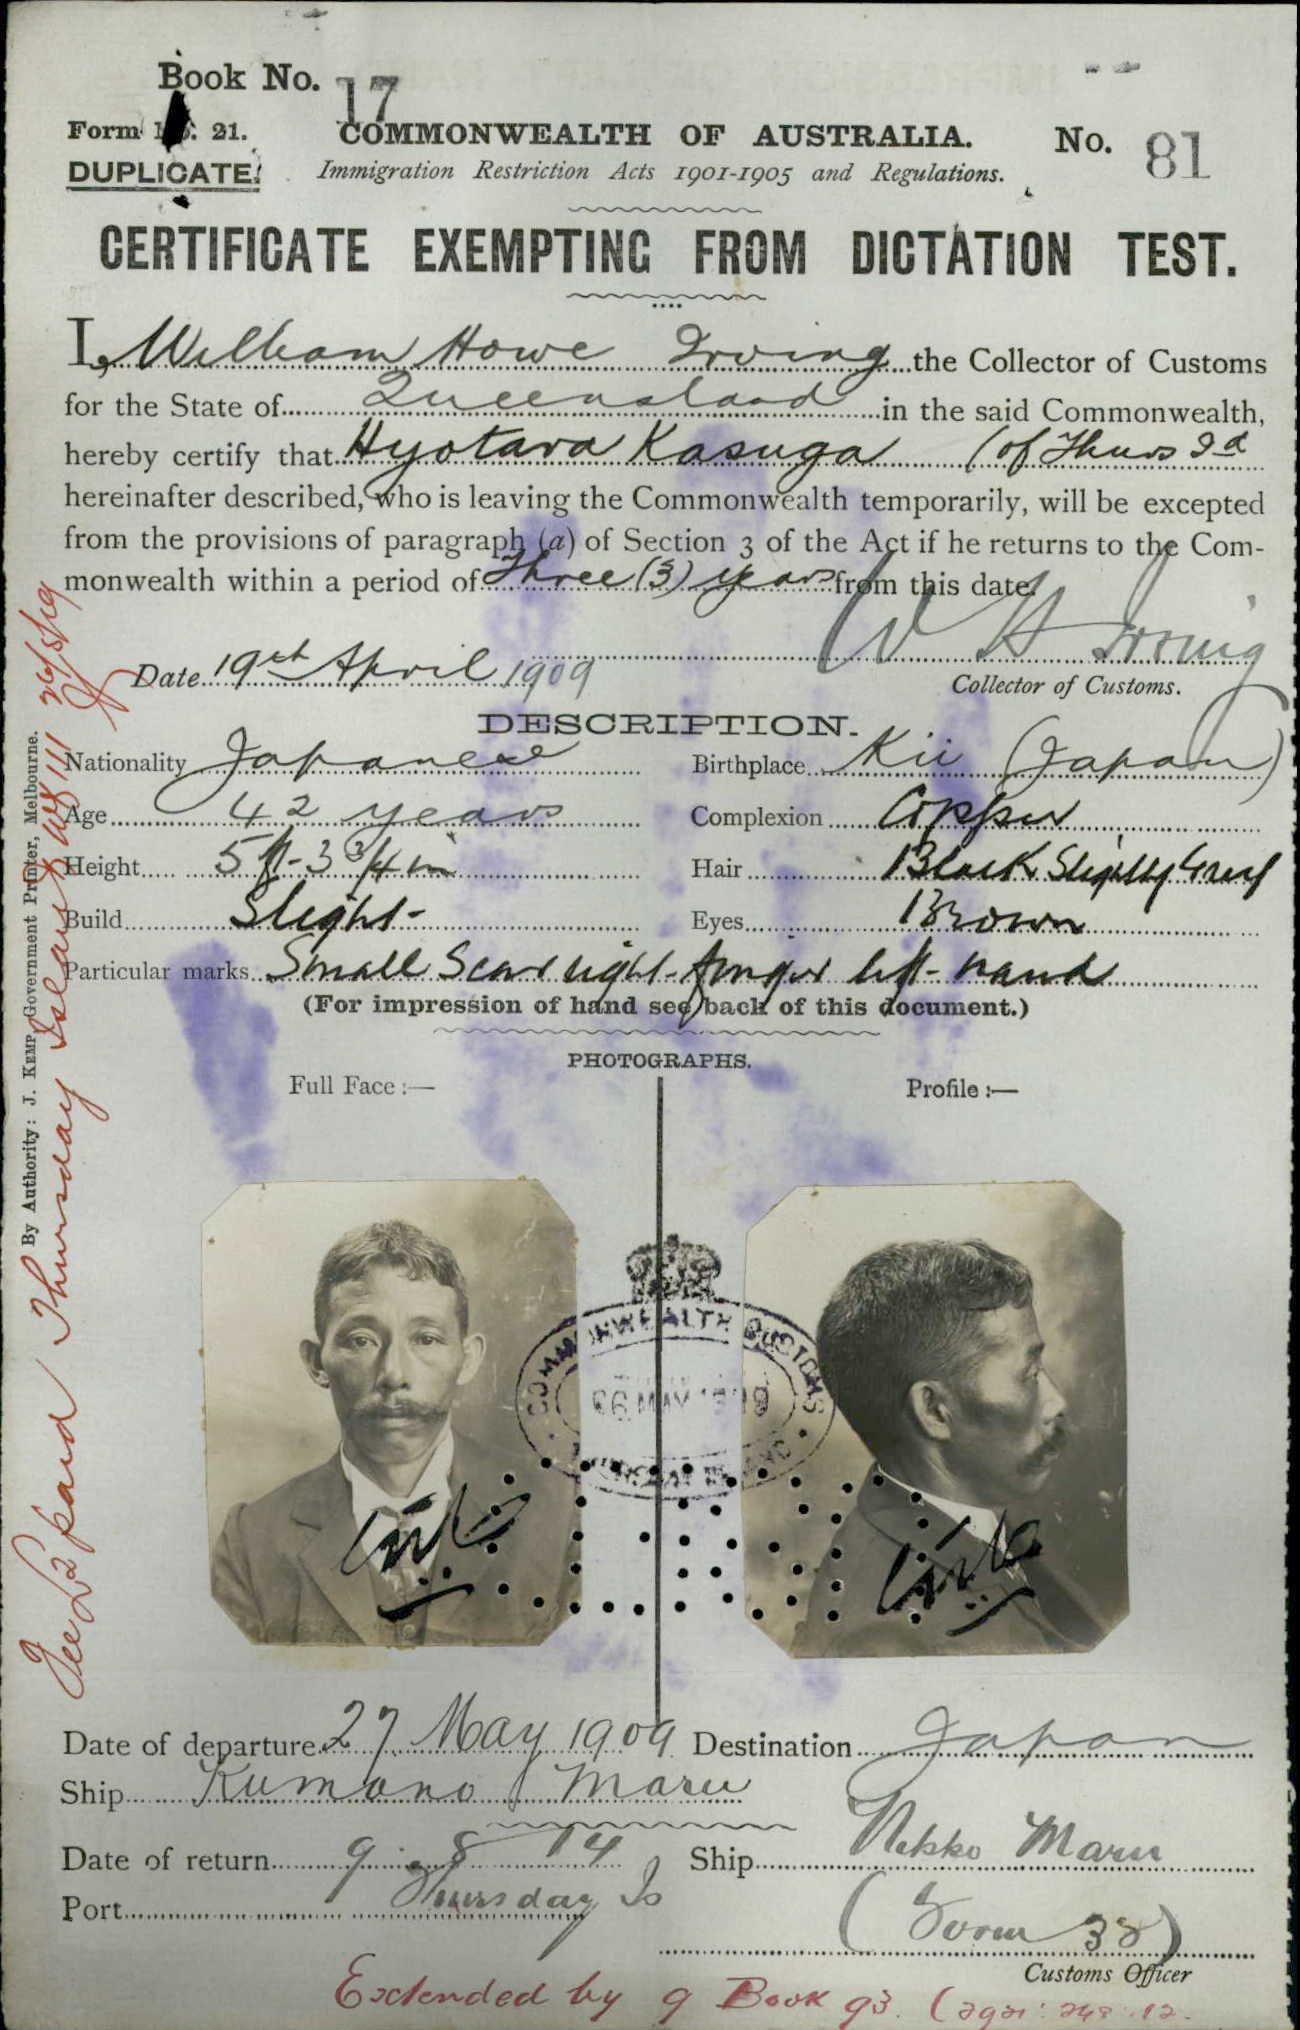 Book No. 17
Form No. 21.
COMMONWEALTH OF AUSTRALIA.
No. 81
DUPLICATE.
Immigration Restriction Acts 1901-1905 and Regulations.
CERTIFICATE EXEMPTING FROM DICTATION TEST.
I, William Howe Irving the Collector of Customs
for the State of Queensland in the said Commonwealth,
hereby certify that Hyotara Kasuga (of Thurs Id
hereinafter described, who is leaving the Commonwealth temporarily, will be excepted
from the provisions of paragraph (a) of Section 3 of the Act if he returns to the Com-
monwealth within a period of Three (3) years from this date.
W H Irving
Date 19th April 1909
Collector of Customs.
DESCRIPTION.
Nationality Japanese
Birthplace Kii (Japan)
Age 42 years
Complexion Copper
Height 5 ft-3 3/4 in
Hair Black Slightly Grey
Build Slight-
Eyes Brown
Particular marks Small Scar right finger left hand
(For impression of hand see back of this document.)
PHOTOGRAPHS.
Full Face :—
Profile :—
COMMONWEALTH CUSTOMS
MAY
THURSDAY ISLAND
Date of departure 27 May 1909
Destination Japan
Ship Kumano Maru
Date of return 9. 8 14
Ship Nikko Maru
Port Thursday Is
(Form 32)
Customs Officer
Extended by 9 Book 93.
By Authority: J. KEMP, Government Printer, Melbourne.
Fee £2 paid Thursday Island